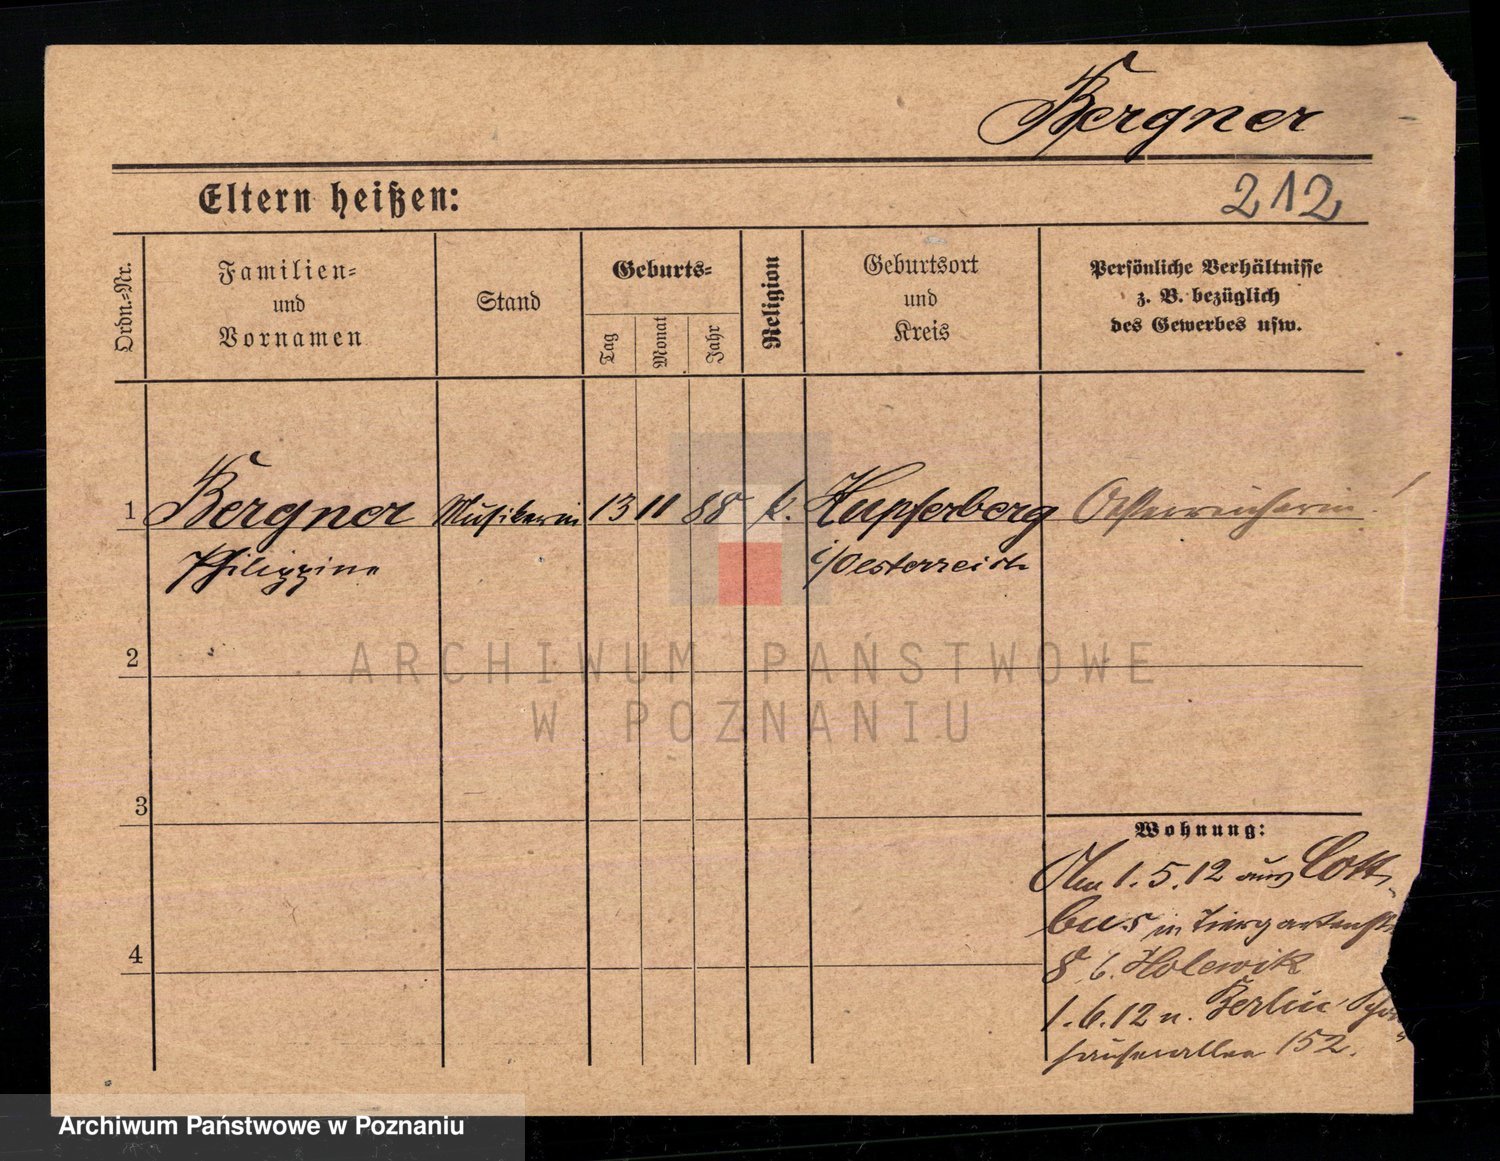 Bergner
Eltern heißen:
212
Ordn.-Nr.
Familien-
und
Vornamen
Stand
Geburts-
Tag
Monat
Jahr
Religion
Geburtsort
und
Kreis
Persönliche Verhältnisse
z. B. bezüglich
des Gewerbes usw.
1 Bergner Musikerin 13 11 88 k. Kupferberg Österreicherin!
Philippine i/Oesterreich
2
3
4
Wohnung:
Am 1.5.12 aus Cott-
bus in Tiergartenstr.
8 b. Holewik
1.6.12 n. Berlin
hauserallee 152.
ARCHIWUM PAŃSTWOWE
W POZNANIU
Archiwum Państwowe w Poznaniu